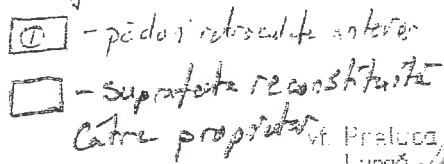 ① - păduri retrocedate anterior
- suprafața reconstituită
către proprietar vf. Preluca